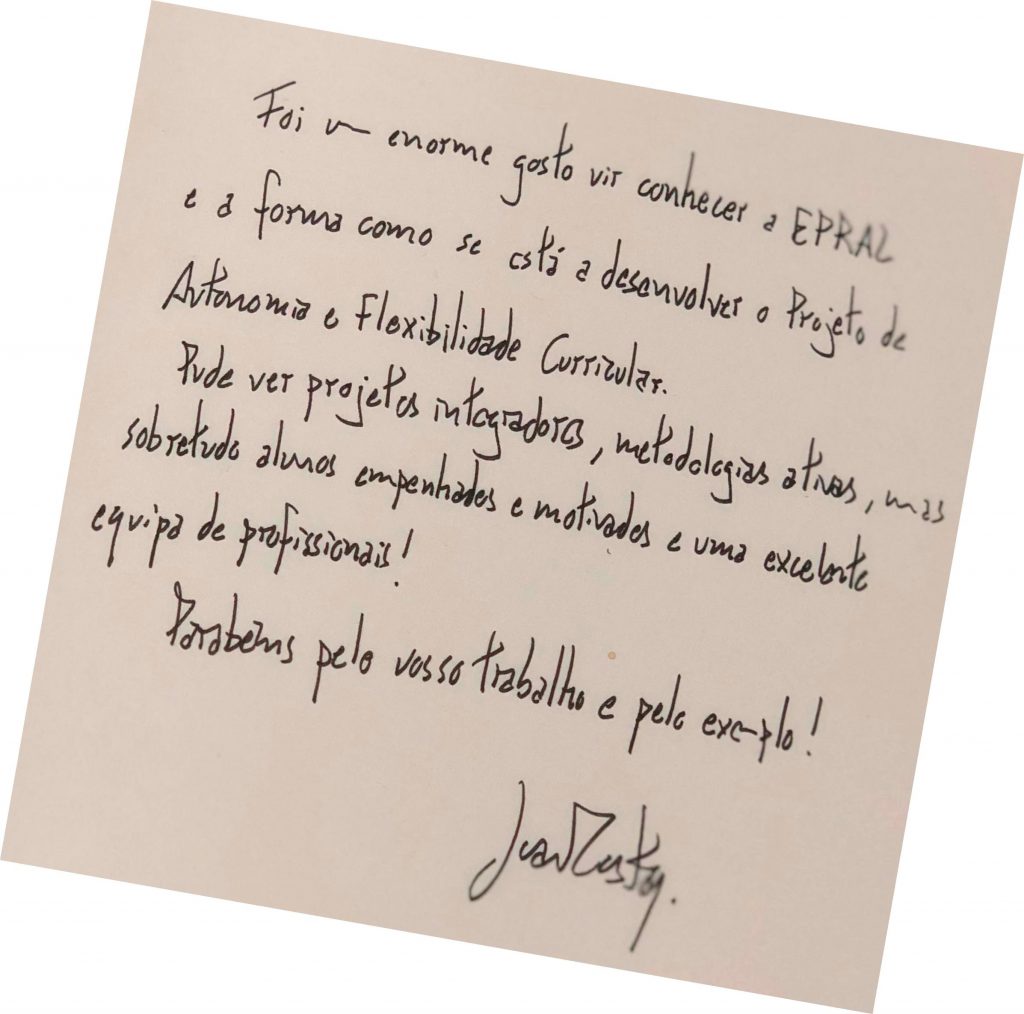 Foi um enorme gosto vir conhecer a EPRAL
e a forma como se está a desenvolver o Projeto de
Autonomia e Flexibilidade Curricular.
Pude ver projetos integradores, metodologias ativas, mas
sobretudo alunos empenhados e motivados e uma excelente
equipa de profissionais!
Parabéns pelo vosso trabalho e pelo exemplo!